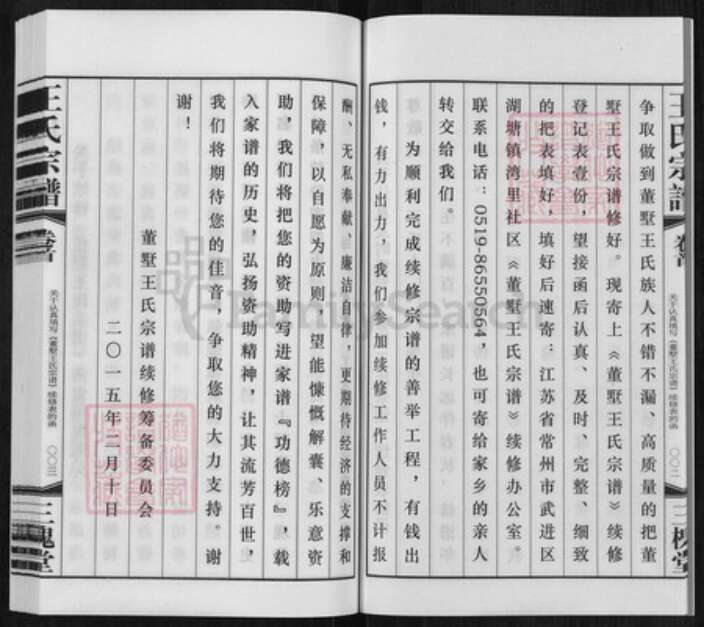 王氏宗谱
卷首
关于认真填写《董墅王氏宗谱》续修表的函
〇〇二
三槐堂
争取做到董墅王氏族人不错不漏、高质量的把董
墅王氏宗谱修好。现寄上《董墅王氏宗谱》续修
登记表壹份，望接函后认真、及时、完整、细致
的把表填好，填好后速寄：江苏省常州市武进区
湖塘镇湾里社区《董墅王氏宗谱》续修办公室。
联系电话：0519-86550564，也可寄给家乡的亲人
转交给我们。
为顺利完成续修宗谱的善举工程，有钱出
钱，有力出力，我们参加续修工作人员不计报
酬、无私奉献、廉洁自律，更期待经济的支撑和
保障，以自愿为原则，望能慷慨解囊、乐意资
助，我们将把您的资助写进家谱『功德榜』，载
入家谱的历史，弘扬资助精神，让其流芳百世，
我们将期待您的佳音，争取您的大力支持。谢
谢！
董墅王氏宗谱续修筹备委员会
二〇一五年二月十日
王氏宗谱
卷首
关于认真填写《董墅王氏宗谱》续修表的函
〇〇三
三槐堂
FamilySearch